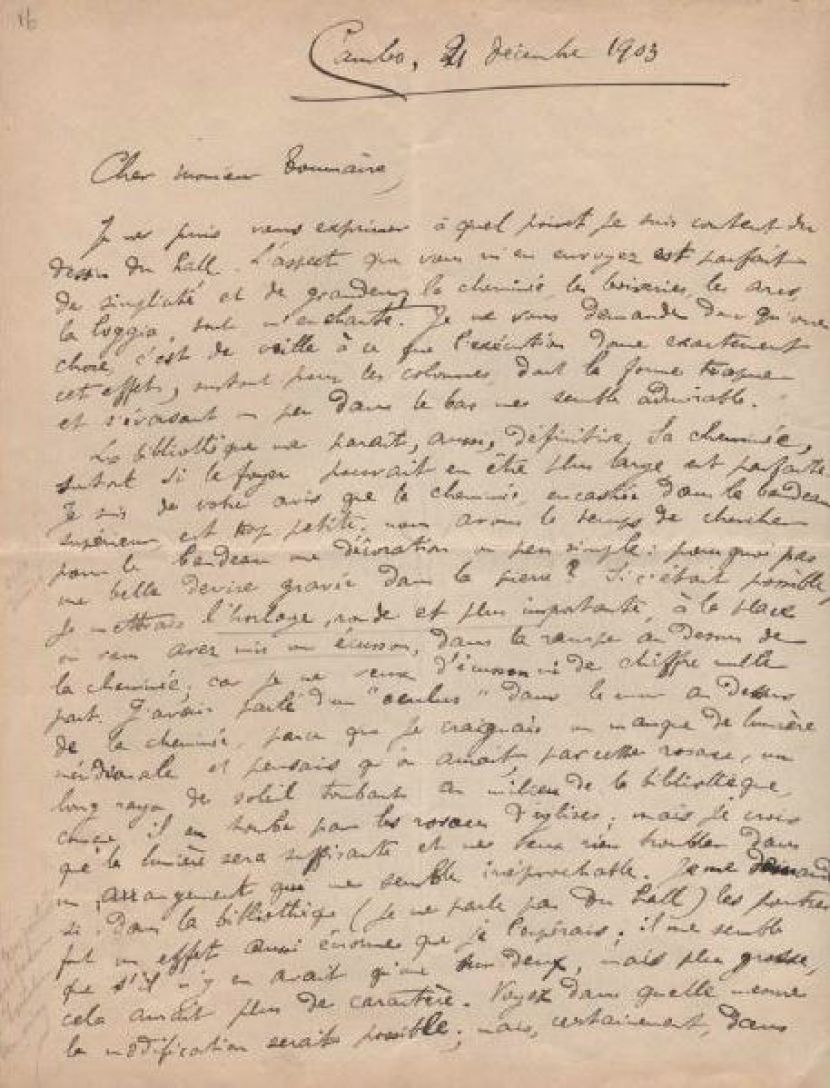 Cambo, 21 décembre 1903
Cher monsieur Tournaire,
Je ne puis vous exprimer à quel point je suis content du
dessin du hall. L'aspect que vous m'en envoyez est parfait
de simplicité et de grandeur, la cheminée, les boiseries, les arcs
la loggia, tout m'enchante. Je ne vous demande donc qu'une
chose, c'est de veiller à ce que l'exécution donne exactement
cet effet, surtout pour les colonnes dont la forme trapue
et s'évasant un peu dans le bas me semble admirable.
La bibliothèque me paraît, aussi, définitive. La cheminée,
surtout si le foyer pouvait en être plus large, est parfaite.
Je suis de votre avis que la cheminée, encastrée dans le bandeau
supérieur, est trop petite; nous avons le temps de chercher
pour le bandeau une décoration un peu simple: pourquoi pas
une belle devise gravée dans la pierre? Si c'était possible,
je mettrais l'horloge, ronde et plus importante, à la place
où vous avez mis un écusson, dans la rampe au dessus de
la cheminée; car je ne veux d'écusson ni de chiffre nulle
part. J'avais parlé d'un "oculus" dans le mur au dessus
de la cheminée, parce que je craignais un manque de lumière
méridionale et pensais qu'on aurait par cette rosace, un
long rayon de soleil tombant au milieu de la bibliothèque,
comme il en tombe par les rosaces d'églises; mais je crois
que la lumière sera suffisante et ne veux rien troubler dans
un arrangement qui me semble irréprochable. Je me demande
si dans la bibliothèque (je ne parle pas du hall) les poutres
font un effet aussi énorme que je l'espérais; il me semble
que s'il n'y en avait qu'une sur deux, mais plus grosse,
cela aurait plus de caractère. Voyez dans quelle mesure
la modification serait possible; mais, certainement, dans